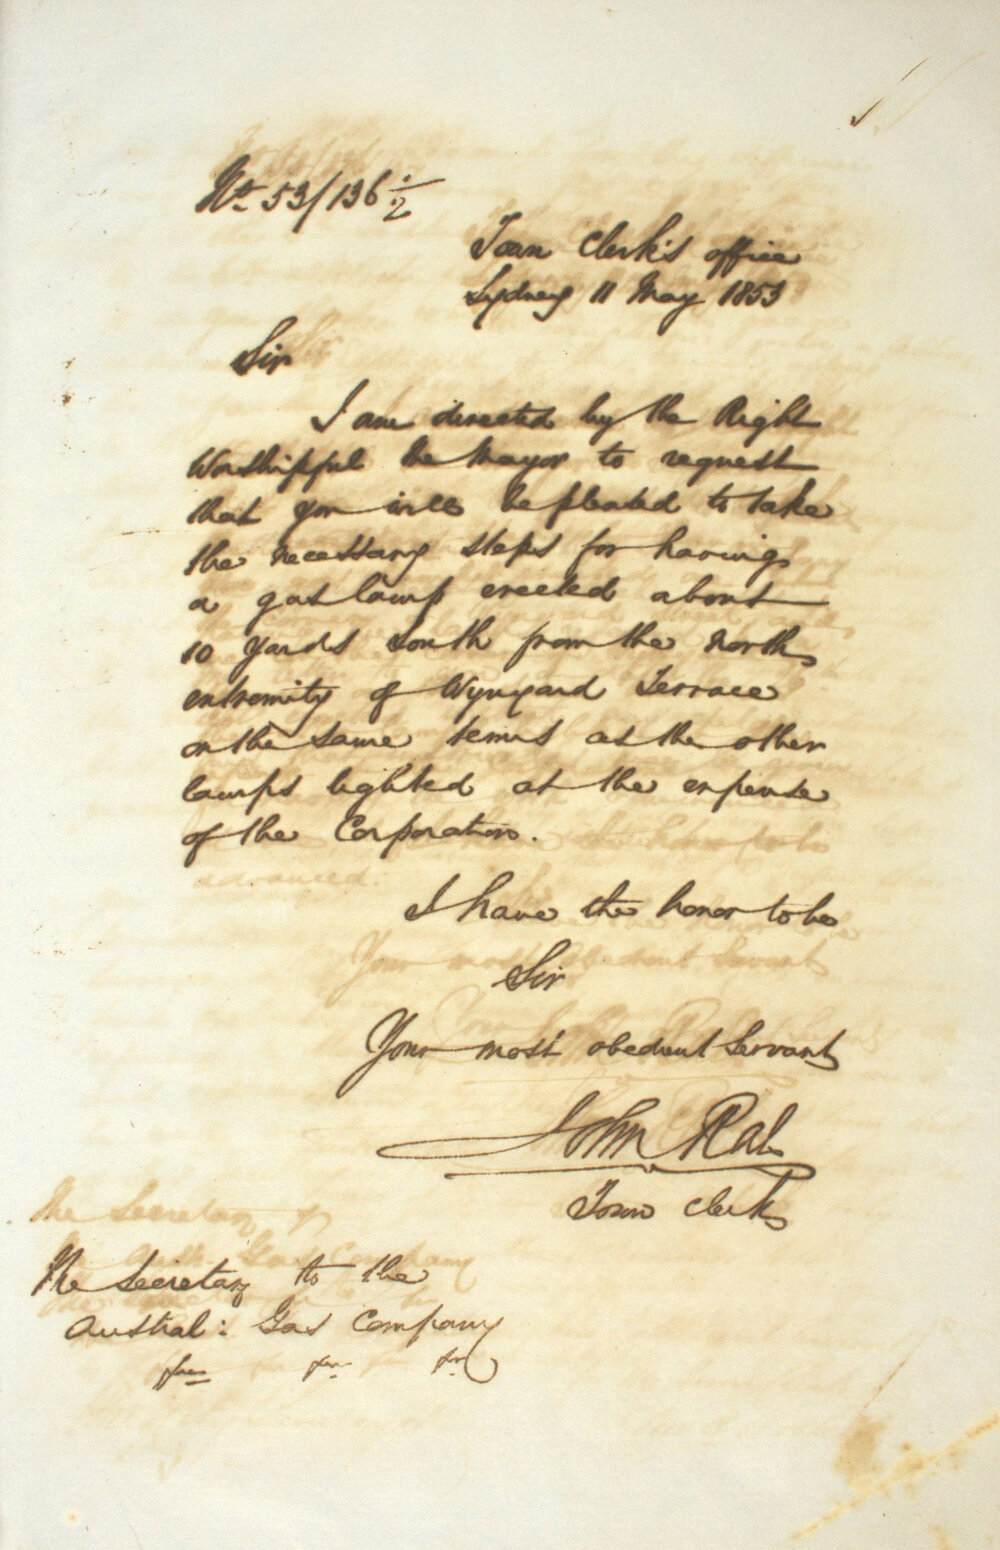 No. 53/136 1/2
Town Clerk's office
Sydney 11 May 1853
Sir
I am directed by the Right
Worshipful the Mayor to request
that you will be pleased to take
the necessary steps for having
a gas lamp erected about
10 yards South from the North
extremity of Wynyard Terrace
on the same terms as the other
lamps lighted at the expense
of the Corporation.
I have the honor to be
Sir
Your most obedient Servant
John Rae
Town Clerk
The Secretary to the
Austral: Gas Company